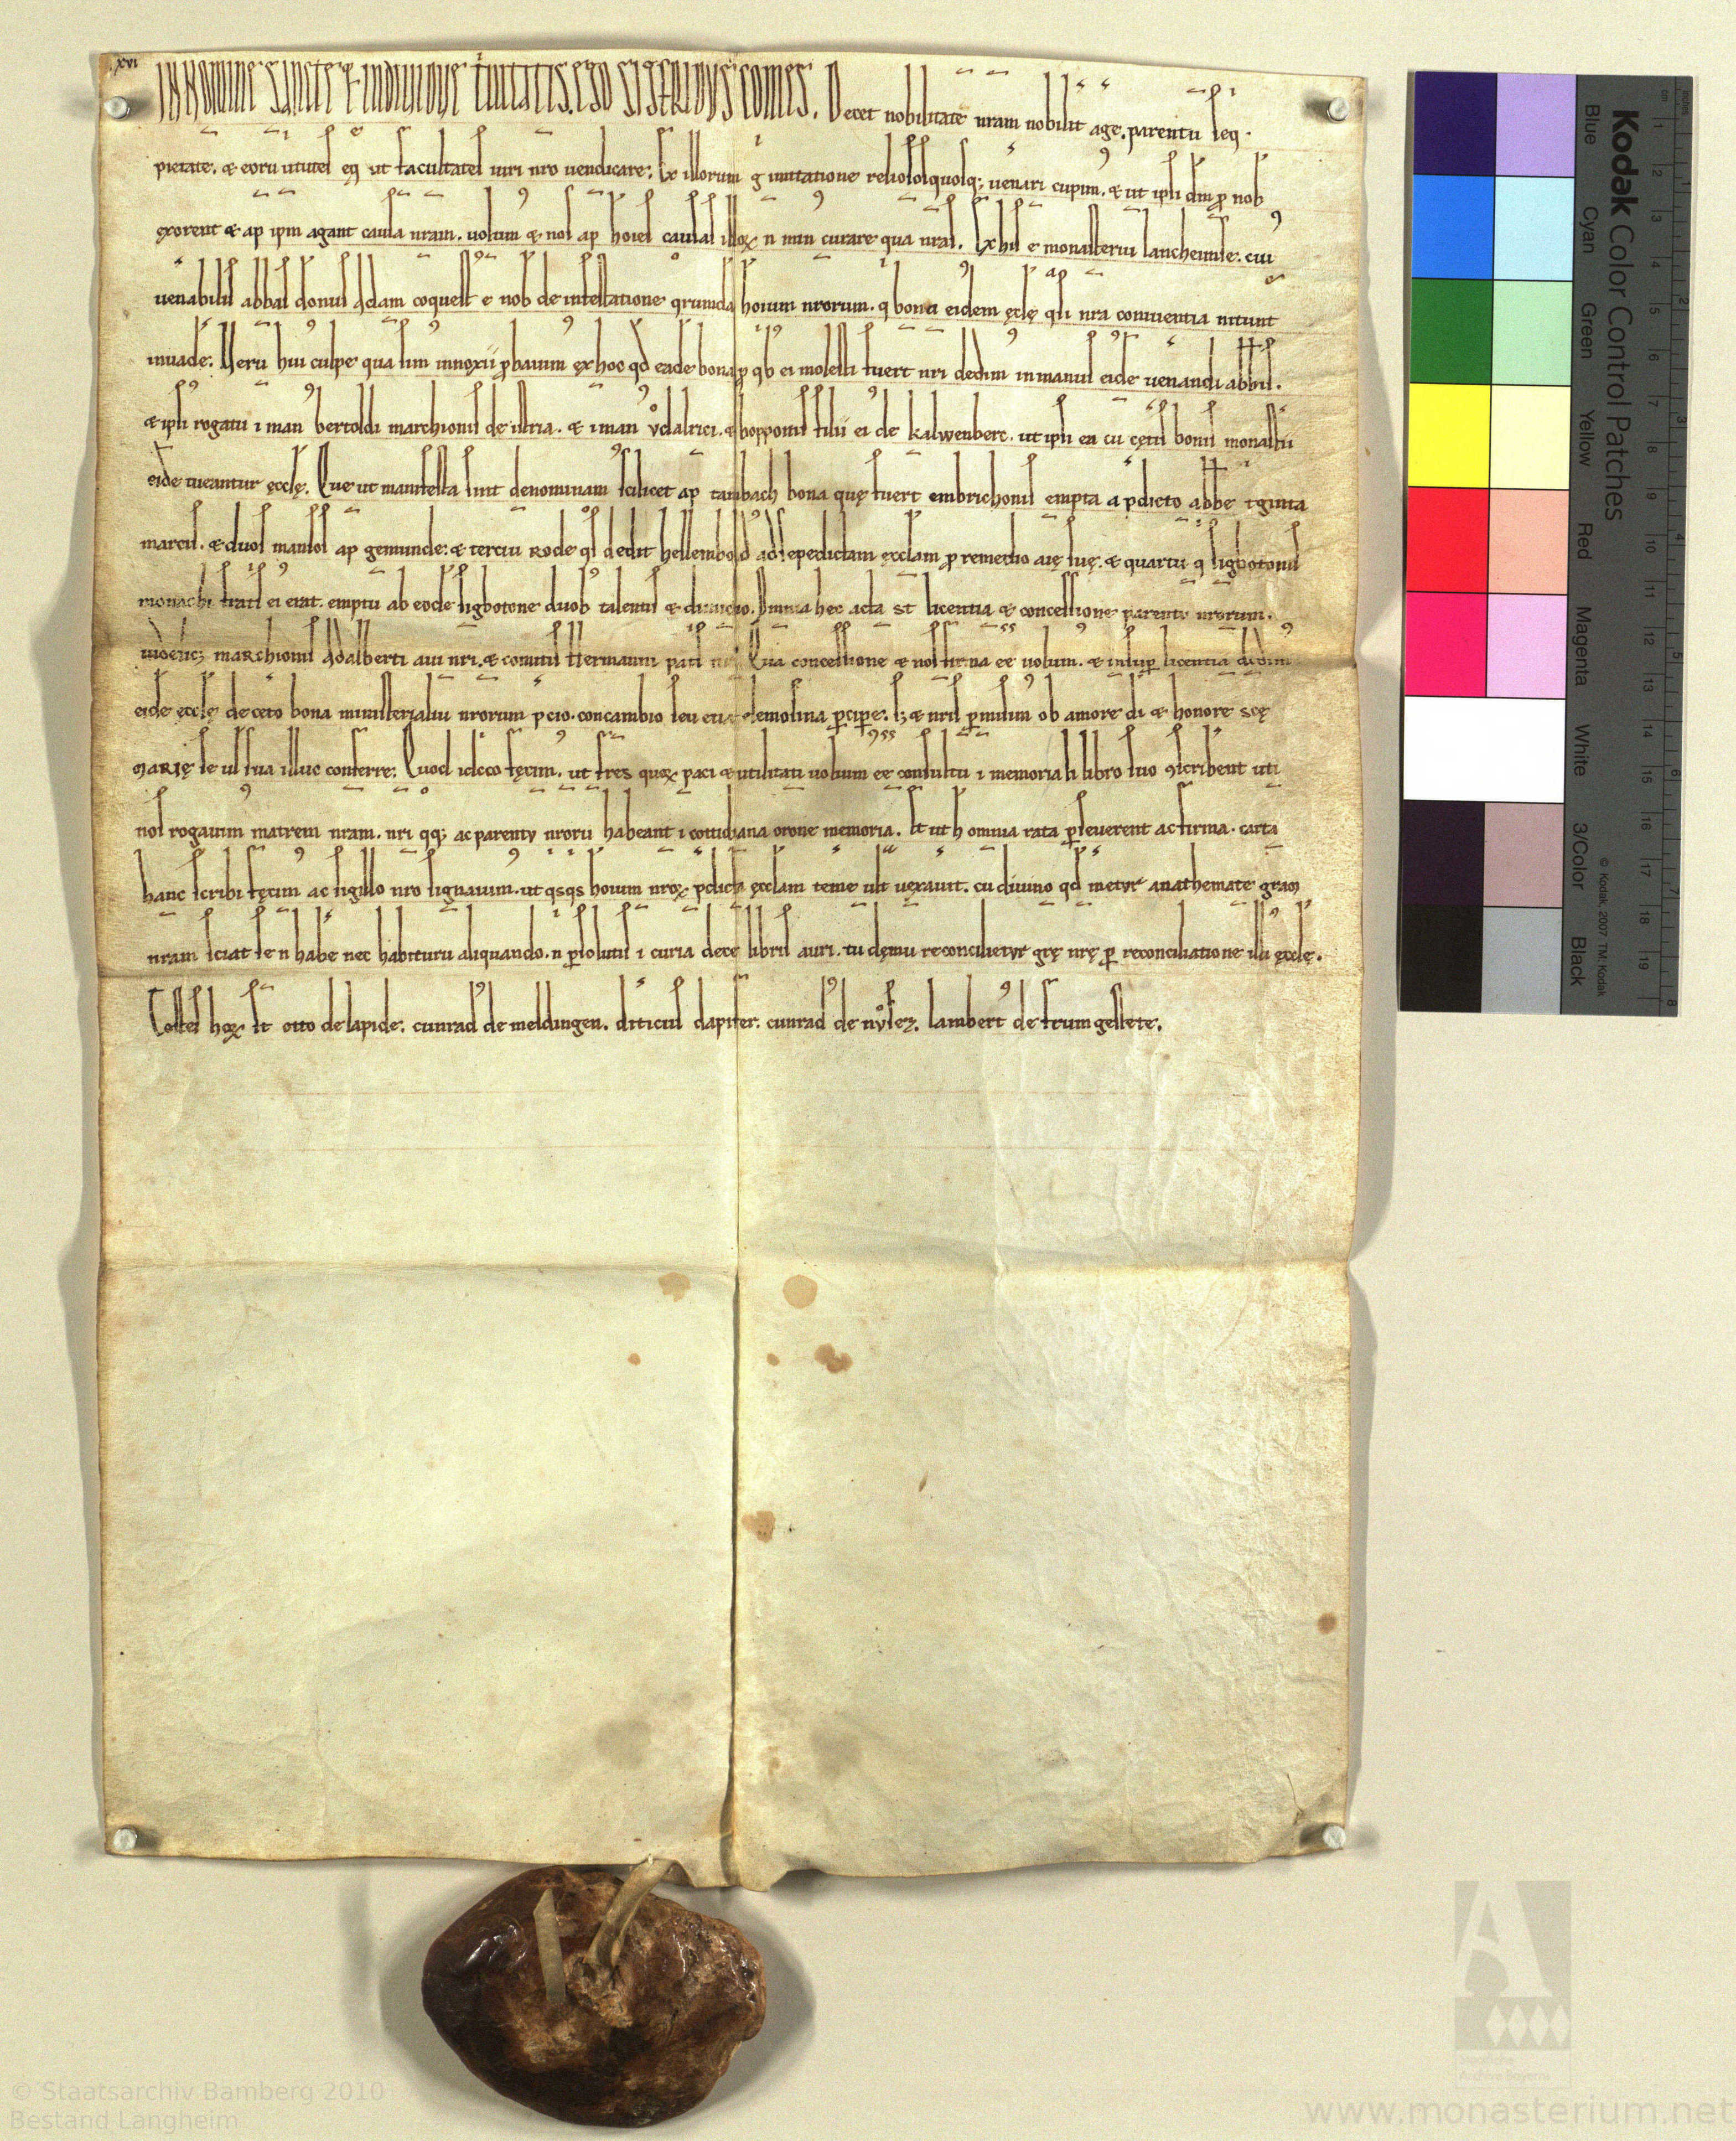 .xvi.
IN NOMINE SANCTE ET INDIVIDVE TRINITATIS. EGO SIGEFRIDVS COMES. Decet nobilitatē nram nobilit agē. parentū seq
pietatē. & eorū utiles eq ut facultates iuri nro uendicare. Ex illorum g imitatione religiosos quosq; uenari cupim. & ut ipsi dm p nob
exorent & ap ipm agant causā nram. uolum & nos ap hoies causas illoꝝ n min curare quā nras. Ex his ē monasteriū lancheimse. cui
uenabilis abbas domn Adam coquest ē nob de infestatione qrunda hoium nrorum. q bona eidem ęcclę qsi nra conniuentia nitunt
inuadē. Verū hui culpe qua sim innoxii pbauim ex hoc qd eadē bona p qb ei molesti fuert nri dedim in manus eidē uenandi abbis.
& ipsi rogatu i man bertoldi marchionis de istria. & i man vͦdalrici. & bopponis filii ei de kalwenberc. ut ipsi ea cū cętis bonis monastii
eidē tueantur ęcclę. Que ut manifesta sint denominam scilicet ap tanbach bona quę fuert embrichonis empta a pdicto abbe tginta
marcis. & duos mansos ap gemunde. & terciū Rode qs dedit hellembold ad sepedictam ęcclam p remedio aię suę. & quartū q sigbotonis
monachi fratis ei erat. emptū ab eodē sigbotone duob talentis & dimidio. Omnia hec acta st licentia & concessione parentū nrorum.
uidelic; marchionis Adalberti aui nri. & comitis Hermanni patis nri. Qua concessione & nos firma eē uolum. & insup licentiā dedim
eidē ęcclę de cęto bona ministerialiū nrorum pcio. concambio seu etiā elemosina pcipe. s; & nris pmisim ob amorē di & honorē scę
MARIĘ se ul sua illuc conferre. Quod idcco fęcim. ut fres quoꝝ paci & utilitati uolum eē consultū i memoriali libro suo ꝯscribent uti
nos rogauim matrem nram. nri qq; ac parentv nrorū habeant i cottidiana orone memoriā. Et ut h omnia rata pseuerent ac firma. cartā
hanc scribi fęcim ac sigillo nro signauim. ut qsqs hoium nroꝝ pdictā ęcclam temē ult uexauit. cū diuino qd metvr anathemate gram
nram sciat se n habē nec habiturū aliquando. n psolutis i curia decē libris auri. tū dęmū reconcilietvr grę nrę p reconciliationē illi ęcclę.
Testes hoꝝ st otto de lapide. cunrad de meldingen. diticus dapifer. cunrad de nvͦsez. lambert de frumgestete.
Kodak Color Control Patches
Blue Cyan Green Yellow Red Magenta White 3/Color Black
© Kodak, 2007 TM: Kodak
© Staatsarchiv Bamberg 2010
Bestand Langheim
Archive Bayerns
www.monasterium.net